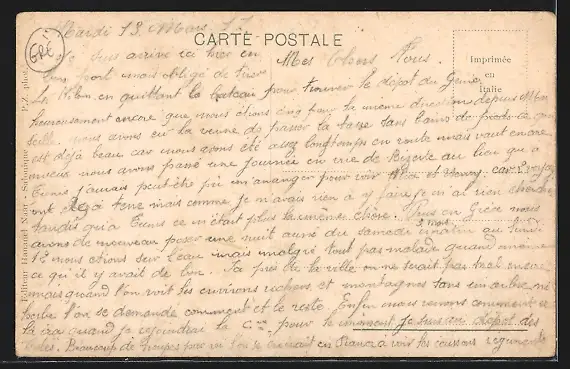 Mardi 13 Mars 17
CARTE POSTALE
Je suis arrivé ici hier en Mes Chers Tous.
bon port mais obligé de faire
Imprimée
en
Italie
P.Z. phot.
Editeur Hananel Naar - Salonique
GRÈ
15 Kilom. en quittant le bateau pour trouver le dépôt du Génie
heureusement encore que nous étions cinq pour la même direction depuis Mar
seille. nous avons eu la veine de passer la tasse sans bains de pieds ce qui
est déjà beau car nous avons été assez longtemps en route mais vaut encore
mieux nous avons passé une journée en vue de Bizerte au lieu qu'à
Tunis j'aurais peut-être pu m'arranger pour voir et car
ont déjà tené mais comme je n'avais rien à y faire je n'ai rien cherché
tandis qu'à Tunis ce n'était plus la même chose. Puis en Grèce nous
avons de nouveau posé une nuit ainsi du samedi matin au lundi
12 nous étions sur l'eau mais malgré tout pas malade quand même
ce qu'il y avait de bon. Ici près de la ville on ne serait pas mal encore
mais quand l'on voit les environs rochers et montagnes sans un arbre ni
herbe l'on se demande comment et le reste. Enfin nous verrons comment ce
la ira quand je rejoindrai la Cie pour le moment je suis au dépôt des
isolés. Beaucoup de troupes par ici l'on se croirait en France à voir les régiments